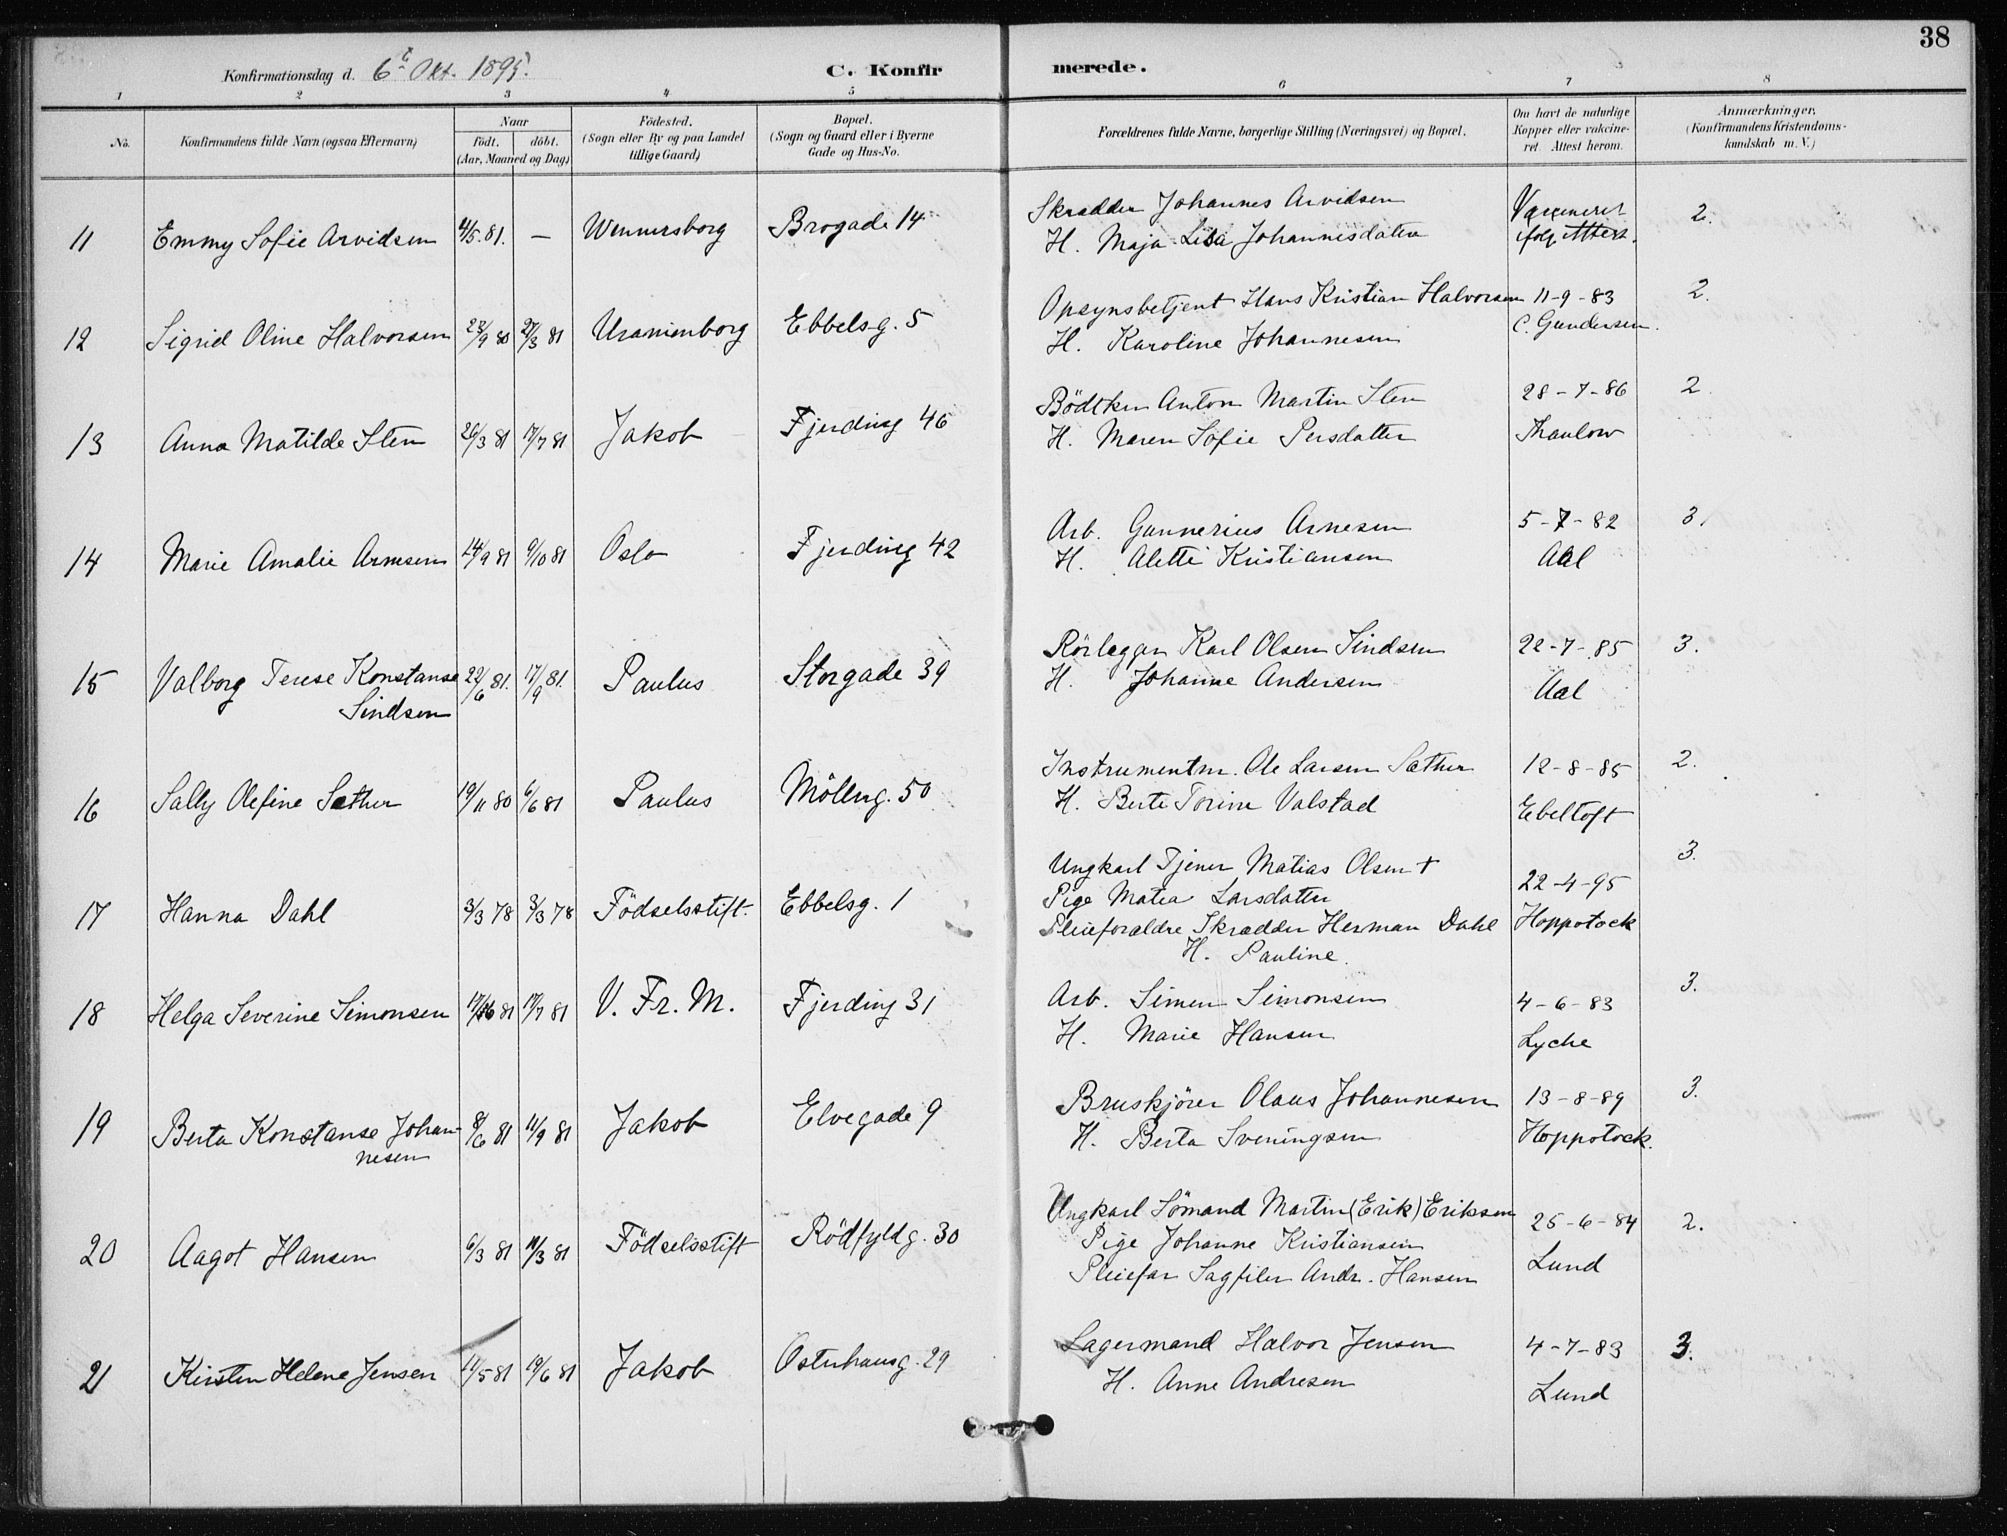 38
Konfirmationsdag d. 6te Okt. 1895. C. Konfirmerede.
1 2 3 4 5 6 7 8
No.
Konfirmandens fulde Navn (ogsaa Efternavn)
Naar
födt. döbt.
(Aar, Maaned og Dag)
Födested.
(Sogn eller By og paa Landet
tillige Gaard)
Bopæl.
(Sogn og Gaard eller i Byerne
Gade og Hus-No.
Forældrenes fulde Navne, borgerlige Stilling (Næringsvei) og Bopæl.
Om havt de naturlige
Kopper eller vakcine-
ret. Attest herom.
Anmærkninger,
(Konfirmandens Kristendoms-
kundskab m. V.)
11 Emmy Sofie Arvidsen 4/5 81. — Wennersborg Brogade 14
Skrædder Johannes Arvidsen Vaccineret 2.
H. Maja Lisa Johannesdatter ifølg Attest.
12 Sigrid Oline Halvorsen 23/9 80 27/3 81 Uranienborg Ebbelsg. 5
Opsynsbetjent Hans Kristian Halvorsen 11-9-83 2.
H. Karoline Johannesen C. Gundersen.
13 Anna Matilde Sten 26/3 81 17/7 81 Jakob Fjerding 46
Bödtker Anton Martin Sten 28-7-86 2
H. Maren Sofie Persdatter Thaulow
14 Marie Amalie Arnesen 14/9 81 9/10 81 Oslo Fjerding 42
Arb. Gunnerius Arnesen 5-7-82 3.
H. Alette Kristiansen Aal
15 Valborg Terese Konstanse 22/6 81. 17/9 81. Paulus Storgade 39
Sindsen
Rörlegger Karl Olsen Sindsen 22-7-85 3.
H. Johanne Andersen Aal
16 Sally Olefine Sæther 19/11 80 6/6 81 Paulus Möllerg. 50
Instrumentm. Ole Larsen Sæther 12-8-85 2.
H. Berte Torine Valstad Ebeltoft
17 Hanna Dahl 3/3 78 3/3 78 Födselsstift. Ebbelsg. 1
Ungkarl Tjener Matias Olsen + 3.
Pige Matea Larsdatter 22-4-95
Pleieforældre Skrædder Herman Dahl Hoppotock
H. Pauline.
18 Helga Severine Simonsen 17/6 81 17/7 81 V. Fr. M. Fjerding 31
Arb. Simen Simonsen 4-6-83 3.
H. Marie Hansen Lyche
19 Berta Konstanse Johan- 8/6 81 11/9 81 Jakob Elvegade 9
nesen
Bruskjører Olaus Johannesen 13-8-89 3.
H. Berta Sveningsen Hoppotock.
20 Aagot Hansen 6/3 81 11/3 81 Födselsstift Rödfyldg. 30
Ungkarl Sömand Martin (Erik) Eriksen 25-6-84 2.
Pige Johanne Kristiansen
Pleiefar Sagfiler Andr. Hansen Lund
21 Kirsten Helene Jensen 11/5 81 19/6 81 Jakob Osterhausg. 29
Lagermand Halvor Jensen 4-7-83 3.
H. Anne Andresen Lund